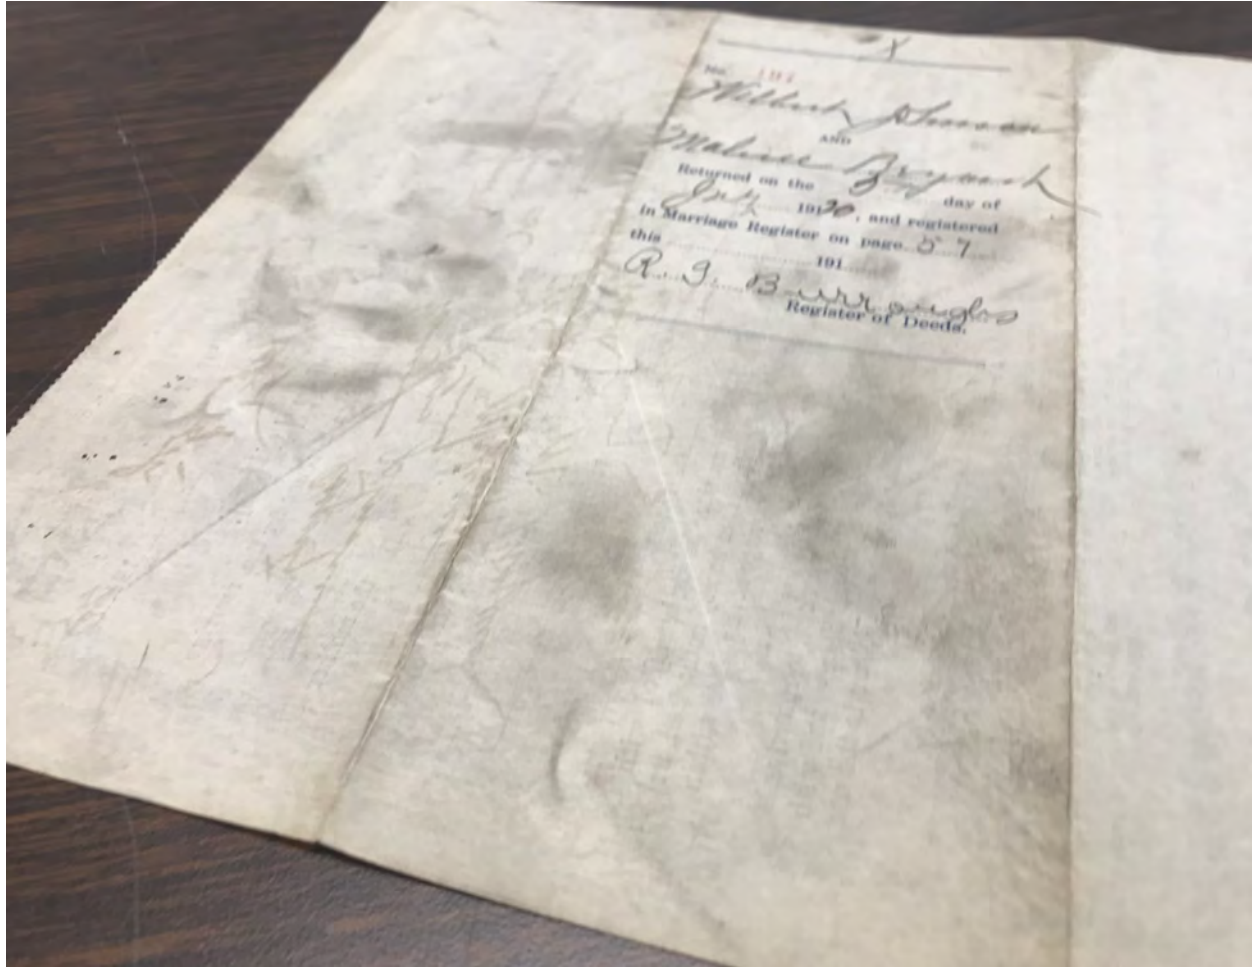 X
No.
Wilbert Johnson
AND
Malissa Bryant
Returned on the day of
1920, and registered
in Marriage Register on page 57
this 191
R. J. Burroughs
Register of Deeds.